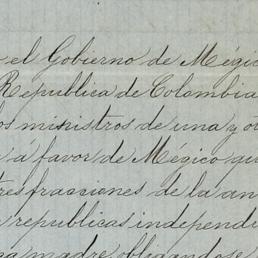 el Gobierno de Mégic
Republica de Colombia
os ministros de una y ot
á favor de Mégico qu
tres fracciones de la an
republicas independi
madre obligandose